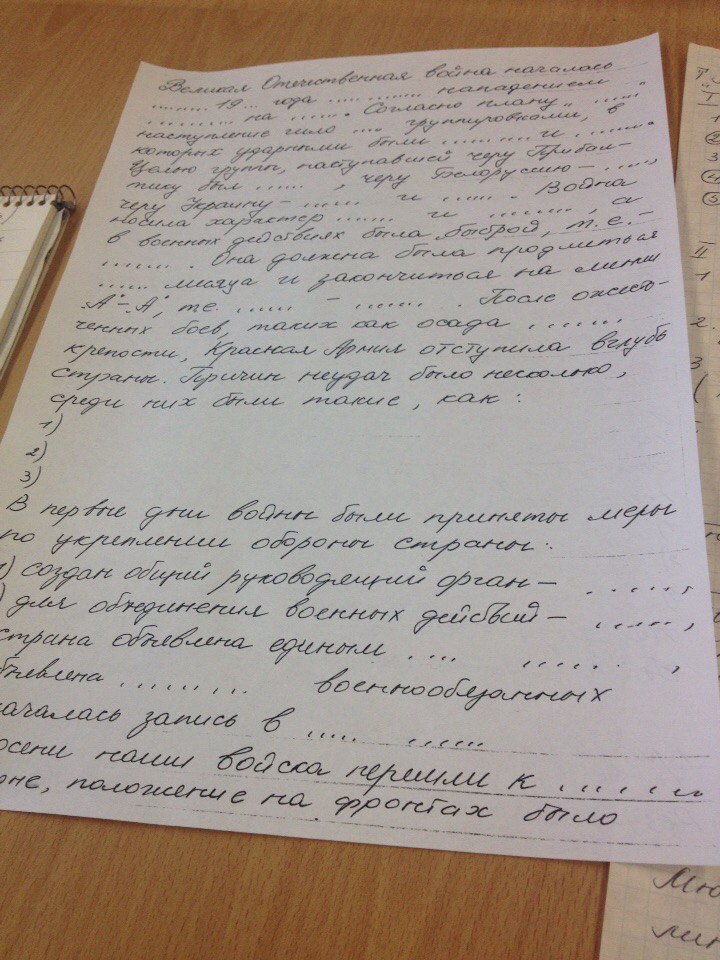 Великая Отечественная война началась
....... 19... года ..... ....... нападением
......... на ...... . Согласно плану „ ..... "
наступление шло .... группировками, в
которых ударными были .......... и ....... .
Целью группы, наступавшей через Прибал-
тику был ...... , через Белоруссию- ..... ,
через Украину- ...... и ...... . Война
носила характер ...... и ........ , а
в военных действиях была „быстрой, т.е.-
....... . Она должна была продлиться
...... месяца и закончиться на линии
„А"-„А", т.е. ...... - ...... . После ожесто-
ченных боев, таких как осада .......
крепости, Красная Армия отступила вглубь
страны. Причин неудач было несколько,
среди них были такие, как:
1)
2)
3)
В первые дни войны были приняты меры
по укреплении обороны страны:
) создан общий руководящий орган- ...... ,
) для объединения военных действий- ...... ,
страна объявлена единым .... ...... ,
бъявлена ........ военнообязанных
началась запись в ..... ......
осени наши войска перешли к .......
не, положение на фронтах было
Т
1
②
3
④
⑤
II
1
2.
3
(
Мю
лин